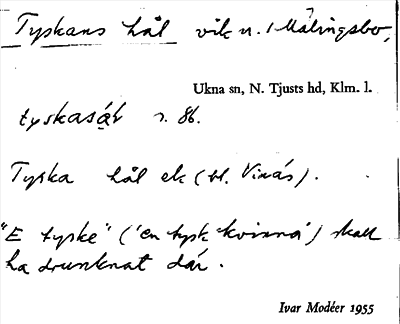 Tyskans hål vik u. Målingsbo,
Ukna sn, N. Tjusts hd, Klm. l.
s. 86.
Tyska hål ek (bl. Vinås).
"E tyske" ('en tysk kvinna') skall
ha drunknat där.
Ivar Modéer 1955